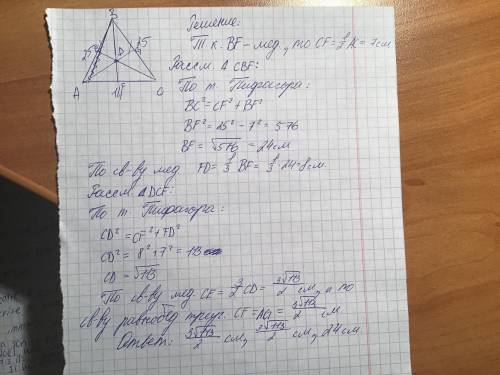 Решение:
Т.к. BF-мед., то CF=½AC=7см
Рассм. Δ CBF:
По т. Пифагора:
BC²=CF²+BF²
BF²=25²-7²=576
BF=√576=24см
По св-ву мед. FD=⅓BF=⅓·24=8см.
Рассм. ΔDCF:
По т. Пифагора:
CD²=CF²+FD²
CD²=8²+7²=113
CD=√113
По св-ву мед. CE=3/2CD=3√113/2 см, а по
св-ву равнобед. треуг. CE=AG=3√113/2 см
Ответ: 3√113/2 см, 3√113/2 см, 24см
B
25
25
D
A
C